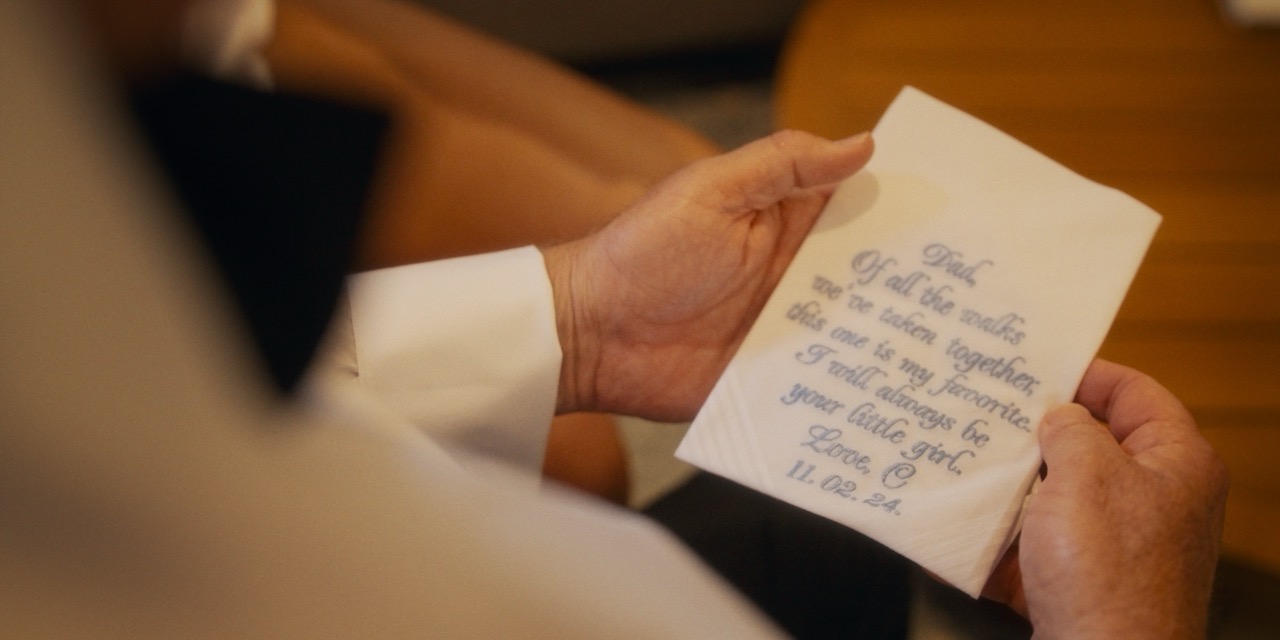 Dad,
Of all the walks
we've taken together,
this one is my favorite.
I will always be
your little girl.
Love, C
11. 02. 24.